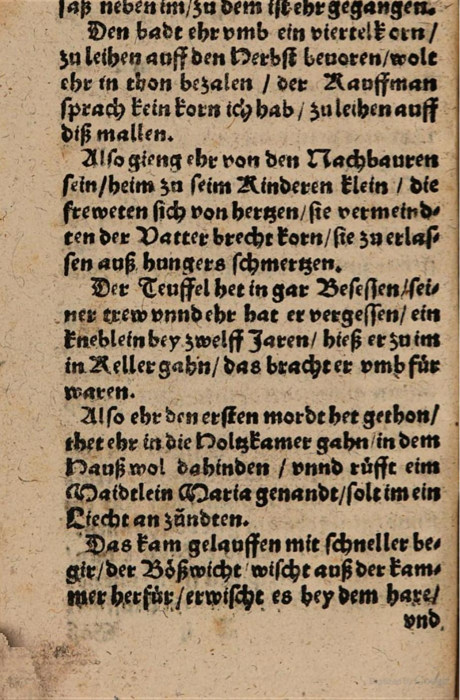 saß neben im/zu dem ist ehr gegangen.
Den badt ehr vmb ein viertel korn/
zu leihen auff den Herbst beuoren/wolt
ehr in thon bezalen / der Kauffman
sprach kein korn ich hab / zu leihen auff
diß mallen.
Also gieng ehr von den Nachbauren
sein/heim zu seim Kinderen klein / die
freweten sich von hertzen/sie vermeind-
ten der Vatter brecht korn/sie zu erlas-
sen auß hungers schmertzen.
Der Teuffel het in gar Besessen/sei-
ner trew vnnd ehr hat er vergessen/ ein
kneblein bey zwelff Jaren/ hieß er zu im
in Keller gahn/ das bracht er vmb für
waren.
Also ehr den ersten mordt het gethon/
thet ehr in die Holtzkamer gahn/in dem
Hauß wol dahinden / vnnd rüfft eim
Maidtlein Maria genandt/solt im ein
Liecht an zündten.
Das kam gelauffen mit schneller be-
gir/der Bößwicht wischt auß der kam-
mer herfür/erwischt es bey dem hare/
vnd